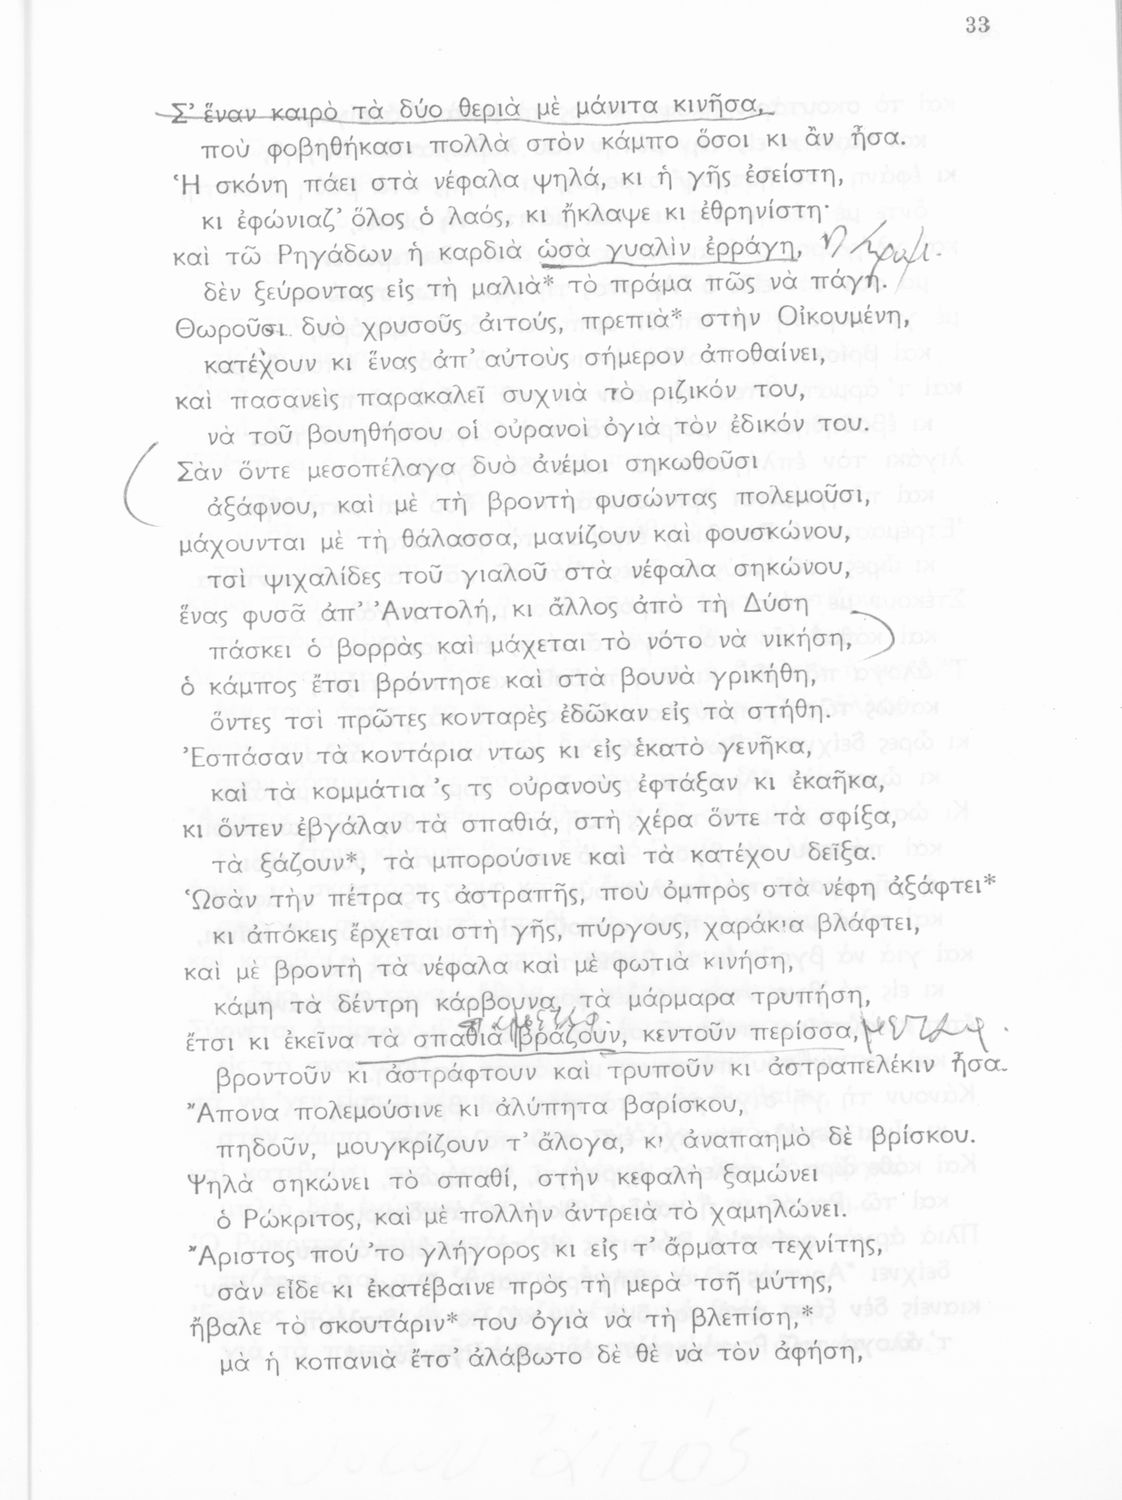 33
Σ' ἕναν καιρὸ τὰ δύο θεριὰ μὲ μάνιτα κινῆσα,
ποὺ φοβηθήκασι πολλὰ στὸν κάμπο ὅσοι κι ἂν ἦσα.
Ἡ σκόνη πάει στὰ νέφαλα ψηλά, κι ἡ γῆς ἐσείστη,
κι ἐφώνιαζ' ὅλος ὁ λαός, κι ἤκλαψε κι ἐθρηνίστη·
καὶ τῶ Ρηγάδων ἡ καρδιὰ ὡσὰ γυαλὶν ἐρράγη,
δὲν ξεύροντας εἰς τὴ μαλιὰ* τὸ πράμα πῶς νὰ πάγη.
Θωροῦσι δυὸ χρυσοῦς ἀιτούς, πρεπιὰ* στὴν Οἰκουμένη,
κατέχουν κι ἕνας ἀπ' αὐτοὺς σήμερον ἀποθαίνει,
καὶ πασανεὶς παρακαλεῖ συχνιὰ τὸ ριζικόν του,
νὰ τοῦ βουηθήσου οἱ οὐρανοὶ ὀγιὰ τὸν ἐδικόν του.
Σὰν ὅντε μεσοπέλαγα δυὸ ἀνέμοι σηκωθοῦσι
ἀξάφνου, καὶ μὲ τὴ βροντὴ φυσώντας πολεμοῦσι,
μάχουνται μὲ τὴ θάλασσα, μανίζουν καὶ φουσκώνου,
τσὶ ψιχαλίδες τοῦ γιαλοῦ στὰ νέφαλα σηκώνου,
ἕνας φυσᾶ ἀπ' Ἀνατολή, κι ἄλλος ἀπὸ τὴ Δύση
πάσκει ὁ βορρὰς καὶ μάχεται τὸ νότο νὰ νικήση,
ὁ κάμπος ἔτσι βρόντησε καὶ στὰ βουνὰ γρικήθη,
ὅντες τσὶ πρῶτες κονταρὲς ἐδῶκαν εἰς τὰ στήθη.
Ἐσπάσαν τὰ κοντάρια ντως κι εἰς ἑκατὸ γενῆκα,
καὶ τὰ κομμάτια 'ς τς οὐρανοὺς ἐφτάξαν κι ἐκαῆκα,
κι ὅντεν ἐβγάλαν τὰ σπαθιά, στὴ χέρα ὅντε τὰ σφίξα,
τὰ ξάζουν*, τὰ μπορούσινε καὶ τὰ κατέχου δεῖξα.
Ὡσὰν τὴν πέτρα τς ἀστραπῆς, ποὺ ὀμπρὸς στὰ νέφη ἀξάφτει*
κι ἀπόκεις ἔρχεται στὴ γῆς, πύργους, χαράκια βλάφτει,
καὶ μὲ βροντὴ τὰ νέφαλα καὶ μὲ φωτιὰ κινήση,
κάμη τὰ δέντρη κάρβουνα, τὰ μάρμαρα τρυπήση,
ἔτσι κι ἐκεῖνα τὰ σπαθιὰ βράζουν, κεντοῦν περίσσα,
βροντοῦν κι ἀστράφτουν καὶ τρυποῦν κι ἀστραπελέκιν ἦσα.
Ἄπονα πολεμούσινε κι ἀλύπητα βαρίσκου,
πηδοῦν, μουγκρίζουν τ' ἄλογα, κι ἀναπαημὸ δὲ βρίσκου.
Ψηλὰ σηκώνει τὸ σπαθί, στὴν κεφαλὴ ξαμώνει
ὁ Ρώκριτος, καὶ μὲ πολλὴν ἀντρειὰ τὸ χαμηλώνει.
Ἄριστος πού 'το γλήγορος κι εἰς τ' ἄρματα τεχνίτης,
σὰν εἶδε κι ἐκατέβαινε πρὸς τὴ μερὰ τσῆ μύτης,
ἤβαλε τὸ σκουτάριν* του ὀγιὰ νὰ τὴ βλεπίση,*
μὰ ἡ κοπανιὰ ἔτσ' ἀλάβωτο δὲ θὲ νὰ τὸν ἀφήση,